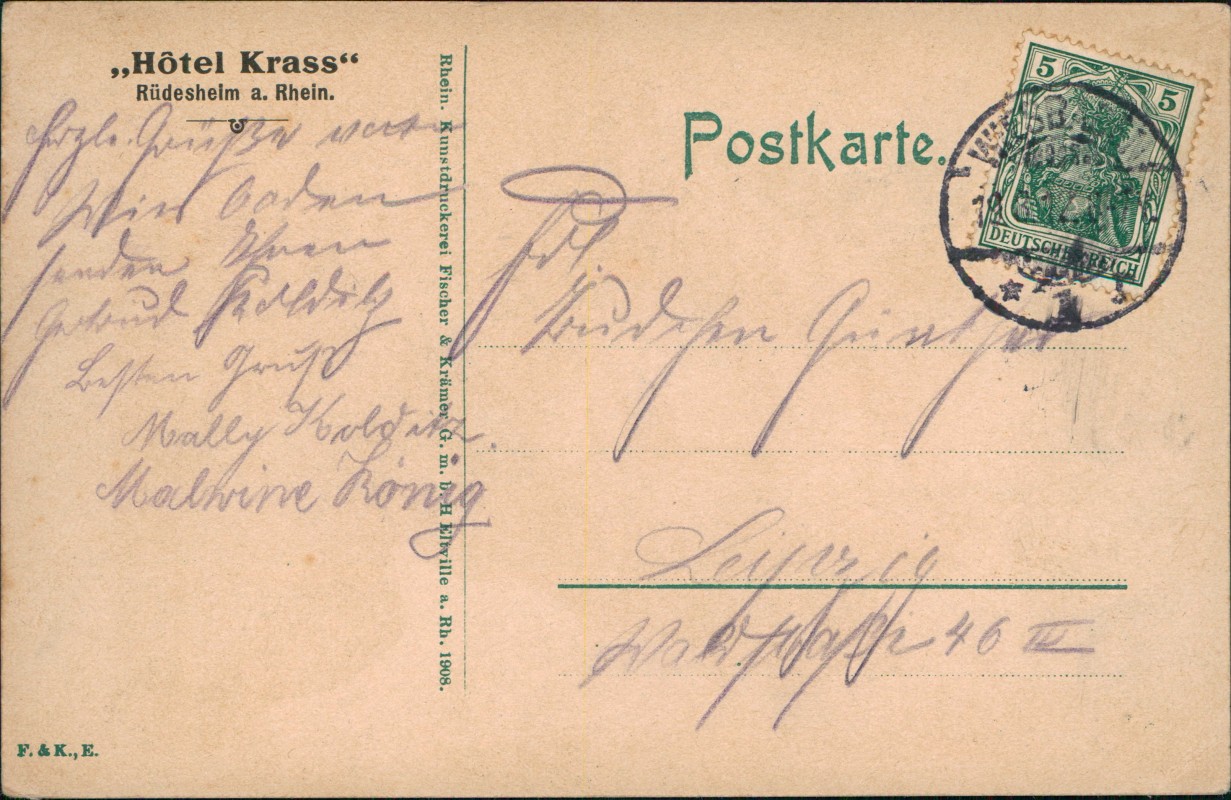 „Hôtel Krass“
Rüdesheim a. Rhein.
Herzl. Grüße
senden Ihnen
Gertrud Kolditz
Besten Gruß
Mally Kolditz.
Malwine König
Rhein. Kunstdruckerei Fischer & Krämer G. m. b H Eltville a. Rh. 1908.
F. & K., E.
Postkarte.
5 5
DEUTSCHES REICH
* 1
Frl.
Günther
Leipzig
Waldstraße 46 III